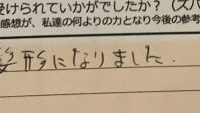 受けられていかがでしたか？（ズバ
感想が、私達の何よりの力となり今後の参考
形になりました.